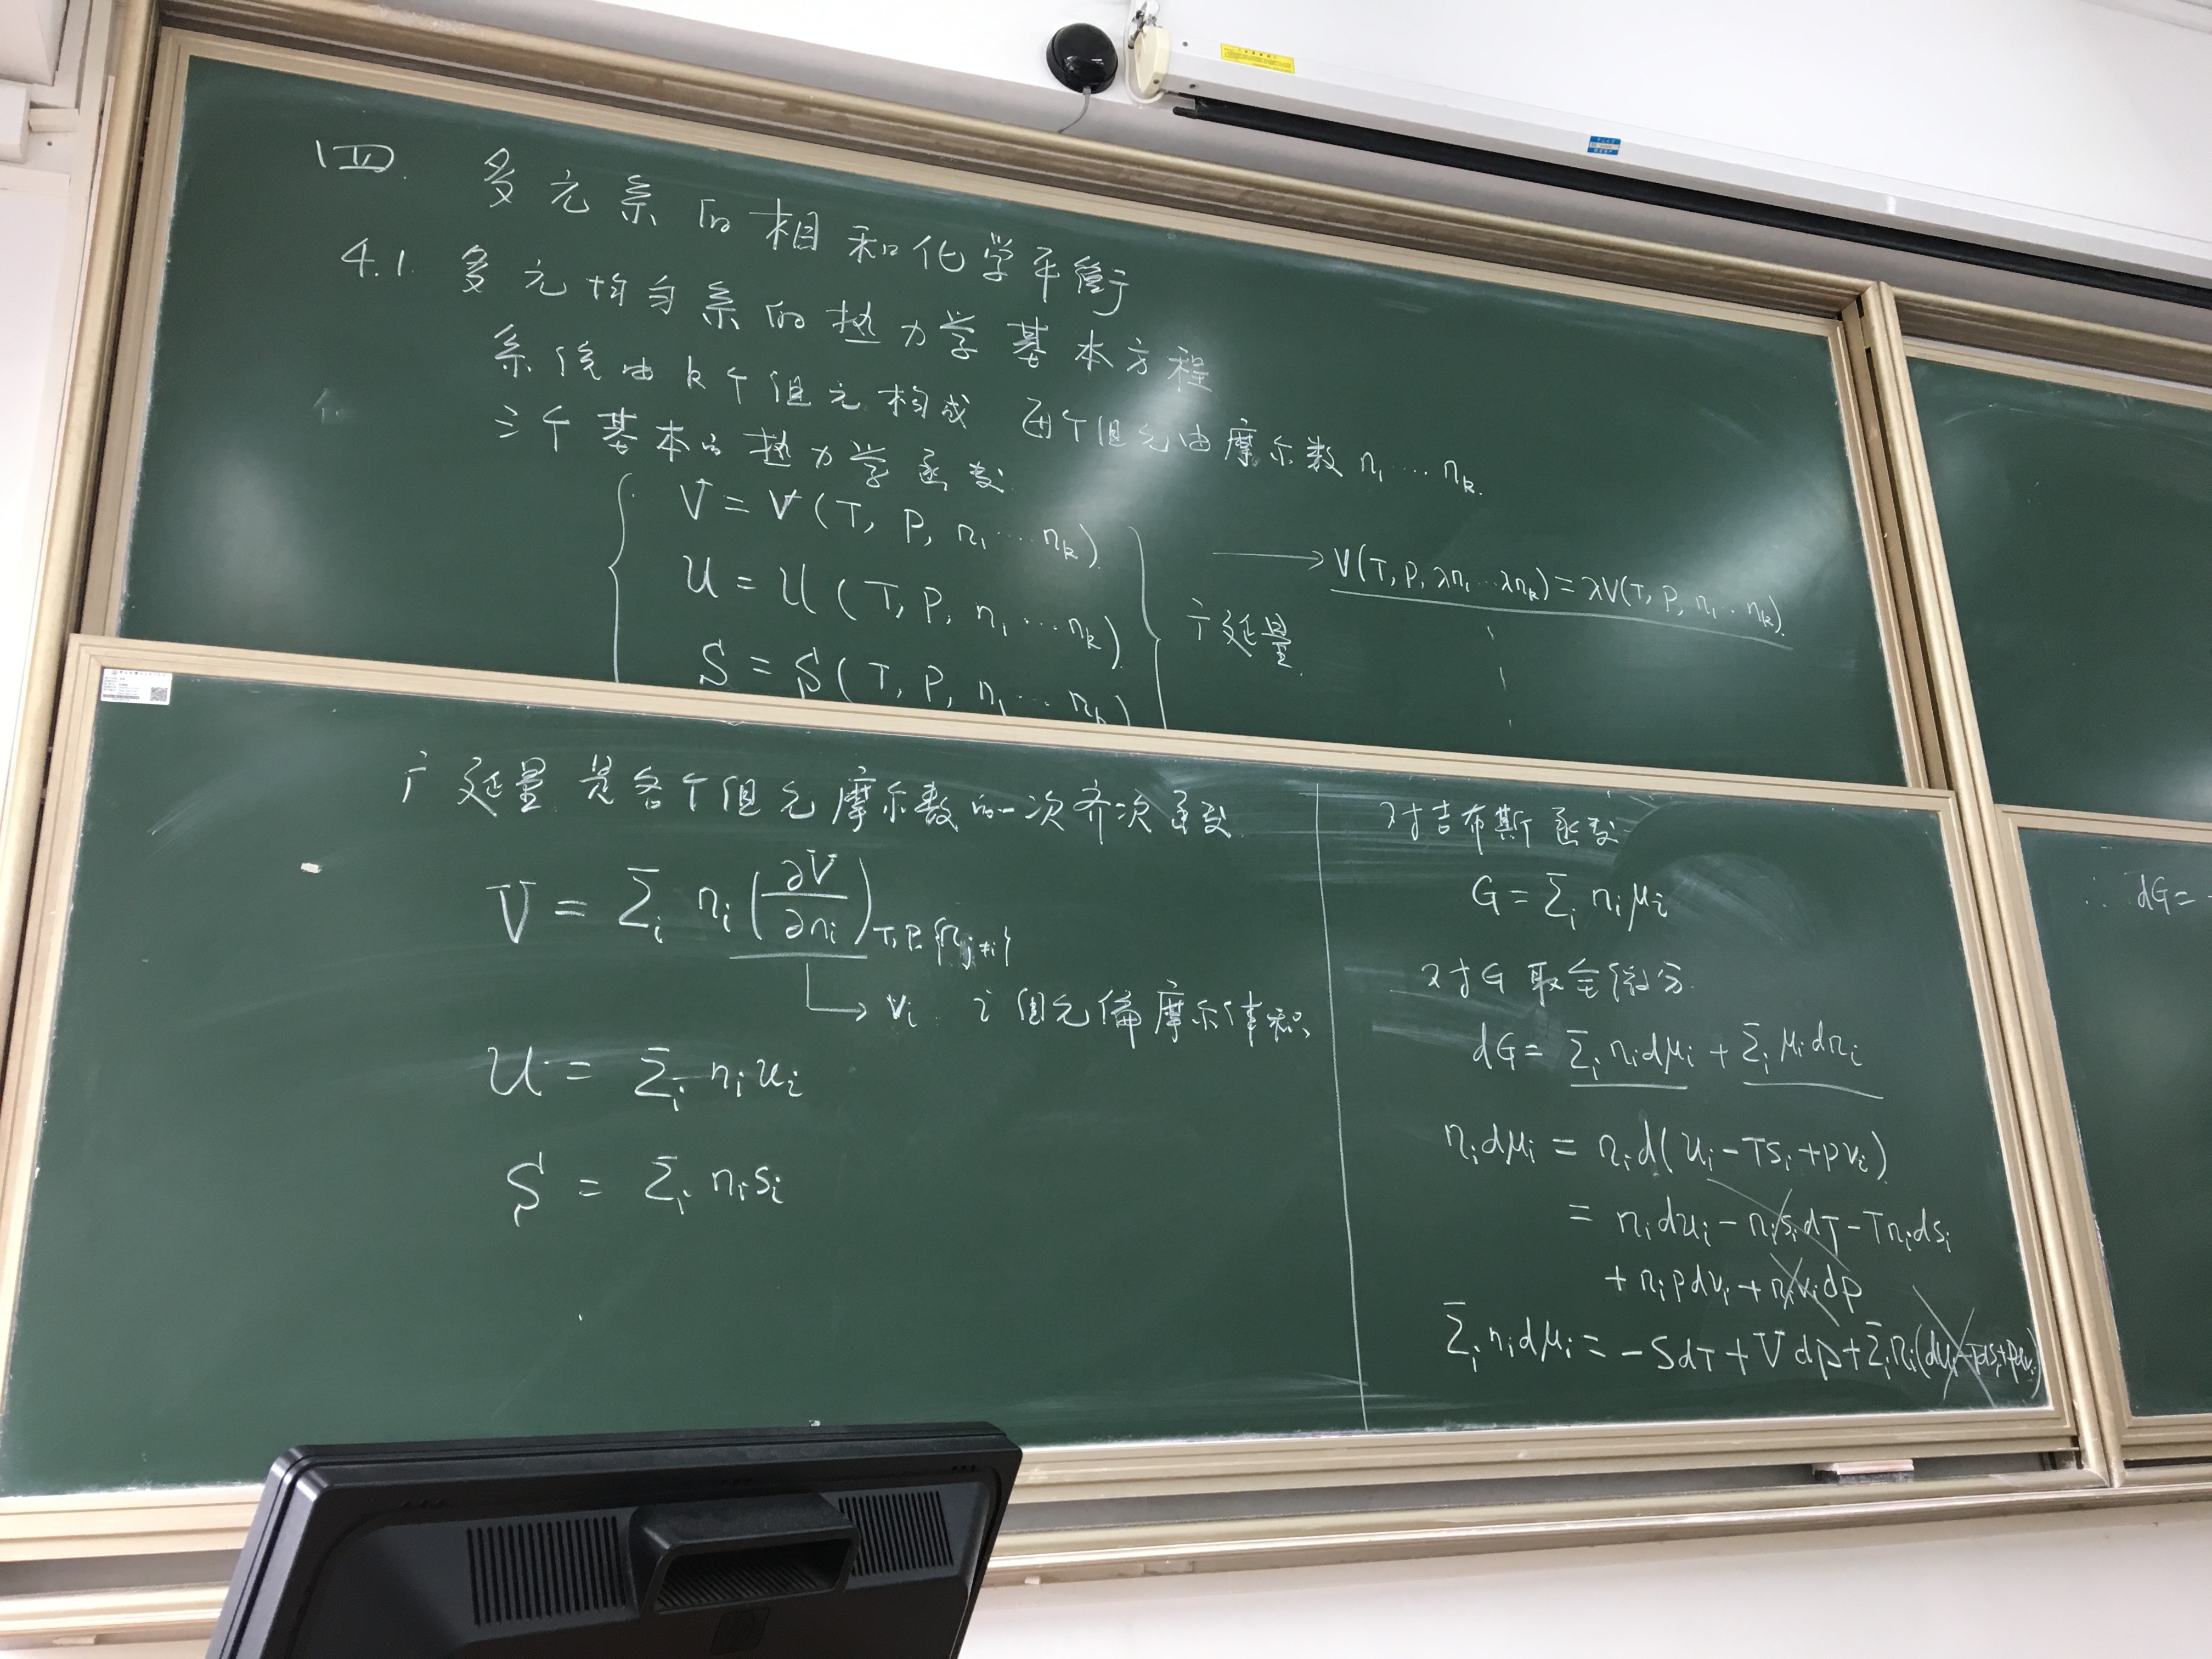 四. 多元系的相和化学平衡
4.1. 多元均匀系的热力学基本方程
系统由 k个组元构成 每个组元由摩尔数 n₁ ⋯ n_k.
三个基本的热力学函数
V = V(T, P, n₁ ⋯ n_k).
U = U(T, P, n₁ ⋯ n_k).
S = S(T, P, n₁ ⋯ n_k)
广延量
→ V(T, P, λn₁ ⋯ λn_k) = λV(T, P, n₁ ⋯ n_k).
广延量 是各个组元摩尔数的一次齐次函数
V = Σ_i n_i (∂V/∂n_i)_{T,P,{n_{j≠i}}}
→ v_i i组元偏摩尔体积
U = Σ_i n_i u_i
S = Σ_i n_i s_i
对吉布斯函数
G = Σ_i n_i μ_i
对G取全微分.
dG = Σ_i n_i dμ_i + Σ_i μ_i dn_i
n_i dμ_i = n_i d(u_i - Ts_i + pv_i)
= n_i du_i - n_i s_i dT - Tn_i ds_i
+ n_i p dv_i + n_i v_i dp
Σ_i n_i dμ_i = -SdT + Vdp + Σ_i n_i(du_i - Tds_i + pdv_i)
∴ dG =